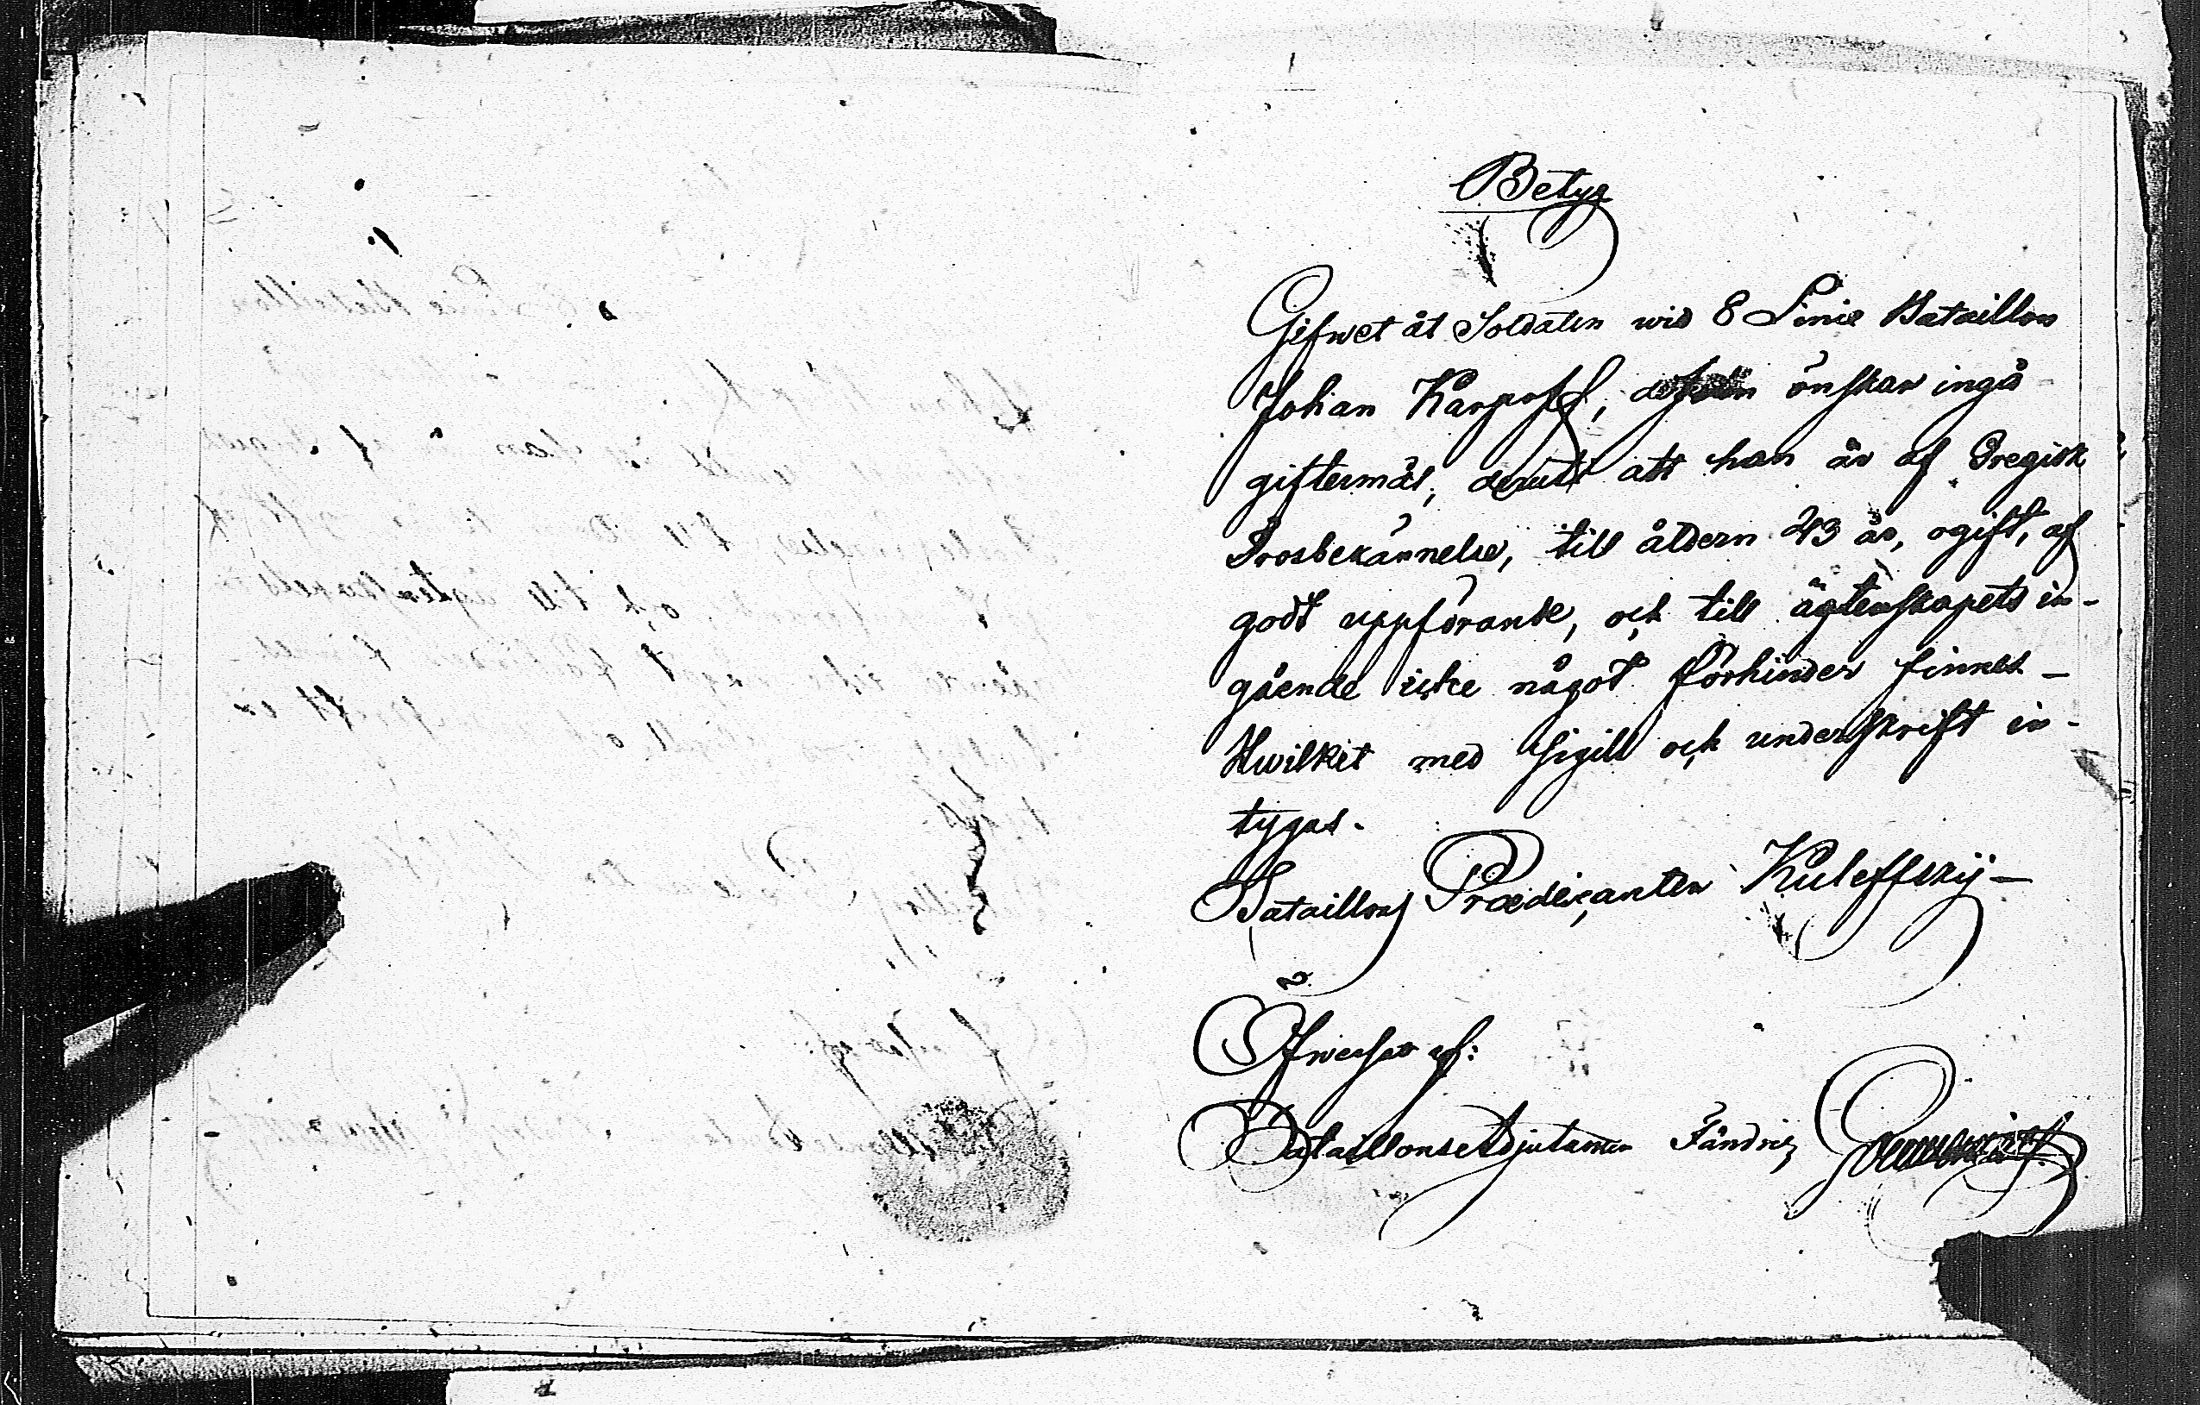 Betyg
Gifwet åt Soldaten wid 8 Linie Bataillon
Johan Karpoff, önskar ingå
giftermål, derutt att han är af Gregisk
Trosbekännelse, till åldern 43 år, ogift, af
godt uppförande, och till ägtenskapets in-
gående icke något förhinder finnes -
Hwilket med Sigill och underskrift in-
tygas.
Bataillons Prædicanten Kuleffskij -
Öfwersat af:
BataillonsAdjutanten Fändric